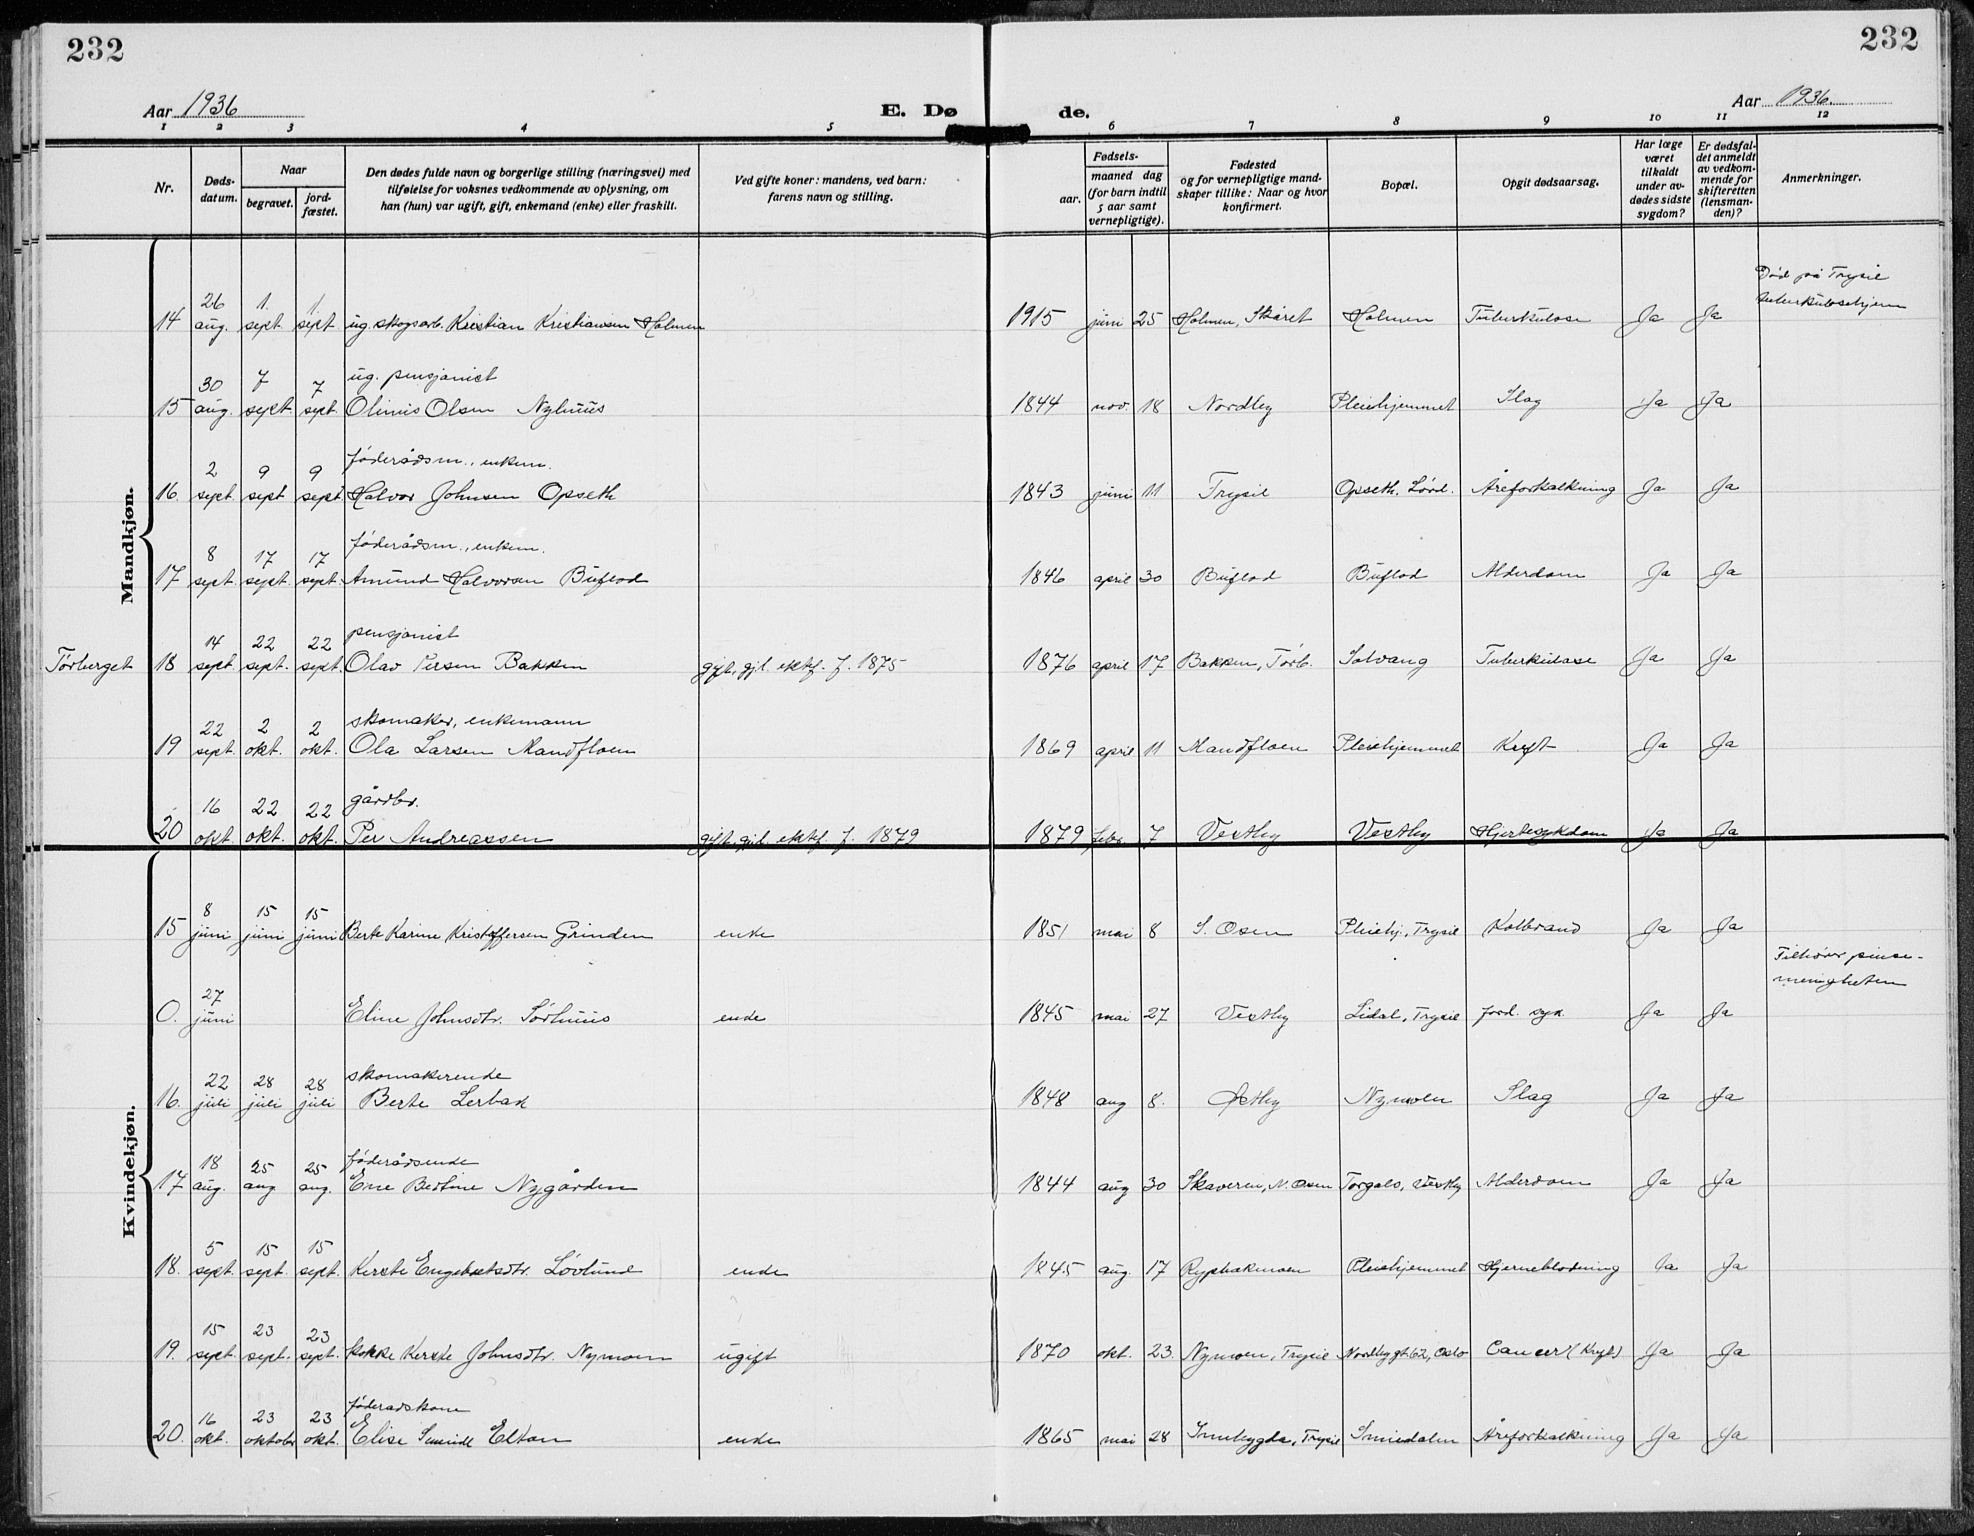 232
232
Aar 1936
E. Dø
de.
Aar 1936.
1 2 3 4 5 6 7 8 9 10 11 12
Nr.
Døds-
datum.
Naar
begravet.
jord-
fæstet.
Den dødes fulde navn og borgerlige stilling (næringsvei) med
tilføielse for voksnes vedkommende av oplysning, om
han (hun) var ugift, gift, enkemand (enke) eller fraskilt.
Ved gifte koner: mandens, ved barn:
farens navn og stilling.
Fødsels-
aar.
maaned dag
(for barn indtil
5 aar samt
vernepligtige).
Fødested
og for vernepligtige mand-
skaper tillike: Naar og hvor
konfirmert.
Bopæl.
Opgit dødsaarsag.
Har læge
været
tilkaldt
under av-
dødes sidste
sygdom?
Er dødsfal-
det anmeldt
av vedkom-
mende for
skifteretten
(lensman-
den)?
Anmerkninger.
Mandkjøn.
26 1. 1. Død på Trysil
14 aug. sept. sept. ug. skogsarb. Kristian Kristiansen Holmen 1915 juni 25 Holmen, Skåret Holmen Tuberkulose Ja Ja tuberkulosehjem
30 7 7 ug. pensjonist
15 aug. sept. sept. Olinus Olsen Nyhuus 1844 nov. 18 Nordby Pleiehjemmet Slag Ja Ja
2 9 9 føderådsm., enkem.
16. sept sept sept Halvor Johnsen Opseth 1843 juni 11 Trysil Opseth, Lørd. Åreforkalkning Ja Ja
8 17 17 føderådsm., enkem.
17 sept. sept. sept. Amund Halvorsen Buflod 1846 april 30 Buflod Buflod Alderdom Ja Ja
14 22 22 pensjonist
Tørberget 18 sept. sept. sept. Olav Persen Bakken gift, gjl. ektef. f. 1875 1876 april 17 Bakken, Tørb. Solvang Tuberkulose Ja Ja
22 2 2 skomaker, enkemann
19 sept. okt. okt. Ola Larsen Mandfloen 1869 april 11 Mandfloen Pleiehjemmet Kreft Ja Ja
16 22 22 gårdbr.
20 okt. okt. okt. Per Andreassen gift, gjl. ektef. f. 1879 1879 febr. 7 Vestby Vestby Hjertesykdom Ja Ja
Kvindekjøn.
8 15 15
15 juni juni juni Berte Karine Kristoffersen Grinden enke 1851 mai 8 S. Osen Pleiehj., Trysil Kolbrand Ja Ja
27 Tilhører pinse-
menigheten
0. juni Eline Johnsdtr. Sørhuus enke 1845 mai 27 Vestby Lidal, Trysil ford. syk. Ja Ja
22 28 28 skomakerenke
16. juli juli juli Berte Lerbak 1848 aug 8. Østby Nymoen Slag Ja Ja
18 25 25 føderådsenke
17 aug. aug aug. Eme Bertine Nygården 1844 aug 30 Skaveren, N. Osen Torgals, Vestby Alderdom Ja Ja
5 15 15
18. sept. sept. sept. Kerste Engebretsdtr. Løvlund enke 1845 aug. 17 Rypbakmoen Pleiehjemmet Hjerneblødning Ja Ja
15 23 23
19. sept. sept. sept. kokke Kerste Johnsdtr. Nymoen ugift 1870 okt. 23. Nymoen, Trysil Nordbygt. 62, Oslo Cancer (Kreft) Ja Ja
16 23 23 føderadskone
20. okt. oktober okt. Elise Elton enke 1865 mai 28 Innbygda, Trysil Smiedalen Åreforkalkning Ja Ja